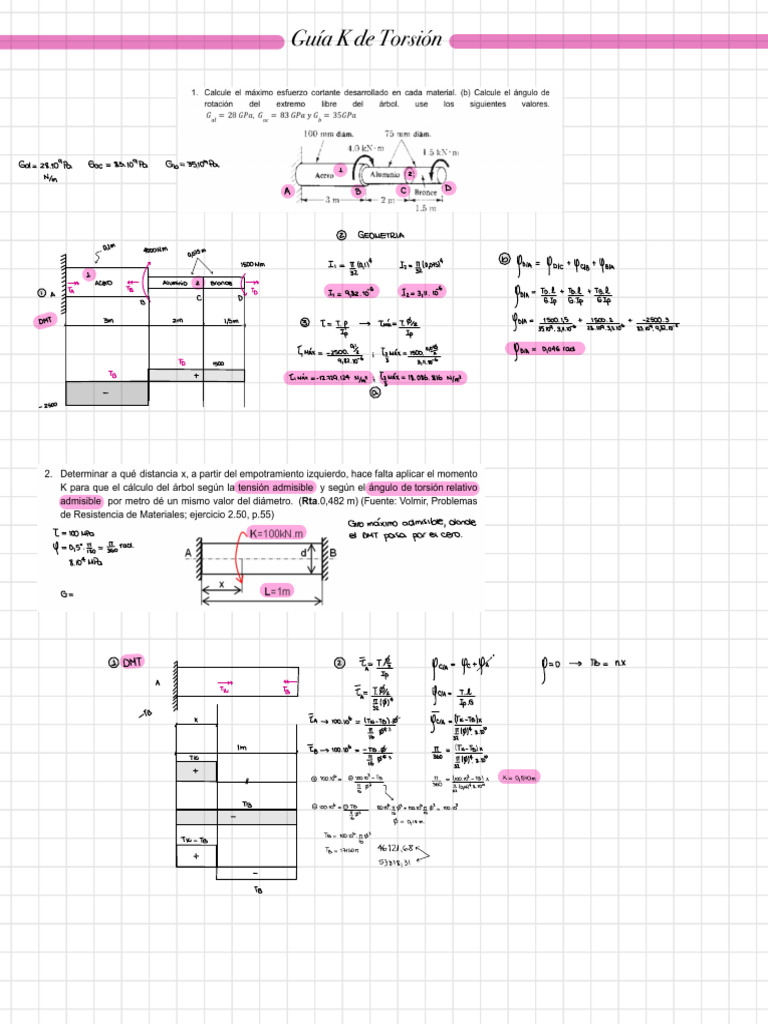 Guía K de Torsión
1. Calcule el máximo esfuerzo cortante desarrollado en cada material. (b) Calcule el ángulo de
rotación del extremo libre del árbol. use los siguientes valores.
G_al = 28 GPa, G_ac = 83 GPa y G_b = 35GPa
100 mm diám. 75 mm diám.
4.0 kN·m
1.5 kN·m
1 Acero Aluminio 2 Bronce
A B C D
3 m 2 m 1.5 m
N/m
② GEOMETRIA
0,1m 4000Nm 0,075m 1500Nm
① A 1 ACERO ALUMINIO 2 BRONCE
TA TB TD
B C D
DMT 3m 2m 1,5m
TB TD 1500
+
−
-2500
I₁ = π/32 (0,1)⁴ I₂ = π/32 (0,075)⁴
I₁ = 9,82.10⁻⁶ I₂ = 3,11.10⁻⁶
③ τ = T.ρ/Ip → τmáx = T.Ø/2/Ip
τ₁ MÁX = -2500. 0,1/2 / 9,82.10⁻⁶ ;
τ₁ MÁX = -12.729.124 N/m² ; τ₂ MÁX = 18.086.816 N/m²
ⓐ
ⓑ φD/A = φD/C + φC/B + φB/A
φD/A = TD.l/G.Ip + TD.l/G.Ip + TB.l/G.Ip
φD/A = 0,046 rad
2. Determinar a qué distancia x, a partir del empotramiento izquierdo, hace falta aplicar el momento
K para que el cálculo del árbol según la tensión admisible y según el ángulo de torsión relativo
admisible por metro dé un mismo valor del diámetro. (Rta.0,482 m) (Fuente: Volmir, Problemas
de Resistencia de Materiales; ejercicio 2.50, p.55)
τ = 100 MPa
φ = 0,5° . π/180 = π/360 rad.
8.10⁴ MPa
G =
K=100kN.m
A d B
x L=1m
Giro máximo admisible, donde
el DMT pasa por el cero.
① DMT
A TK TB
TB
x
1m
TK
+
TB
−
TK - TB
+
−
TB
② τA = T.Ø/2/Ip
τA = T.Ø/2 / π/32 (Ø)⁴
τA → 100.10⁶ = (TK-TB).Ø/2 / π/16 Ø⁴³
τB → 100.10⁶ = -TB.Ø / π/16 Ø⁴³
Ø = 0,18m
46121,68
53878,31
φC/A = φC + φA
φC/A = T.l/Ip.G
φC/A = (TK-TB)x / π/32 (Ø)⁴.8.10¹⁰
π/360 = (TK-TB)x / π/32 (Ø)⁴.8.10¹⁰
φ=0 → TB = n.x